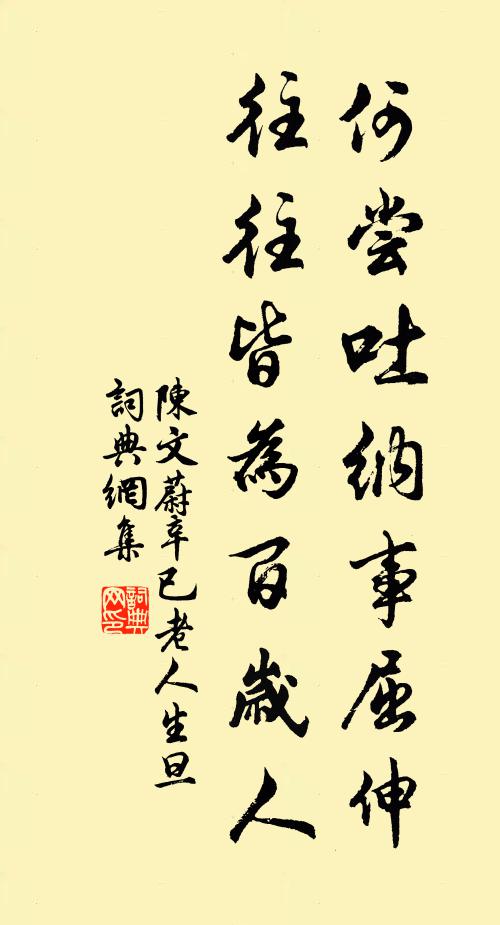 何嘗吐納事屈伸
往往皆為百歲人
陳文蔚辛巳老人生旦
詞典網集
詞典網印